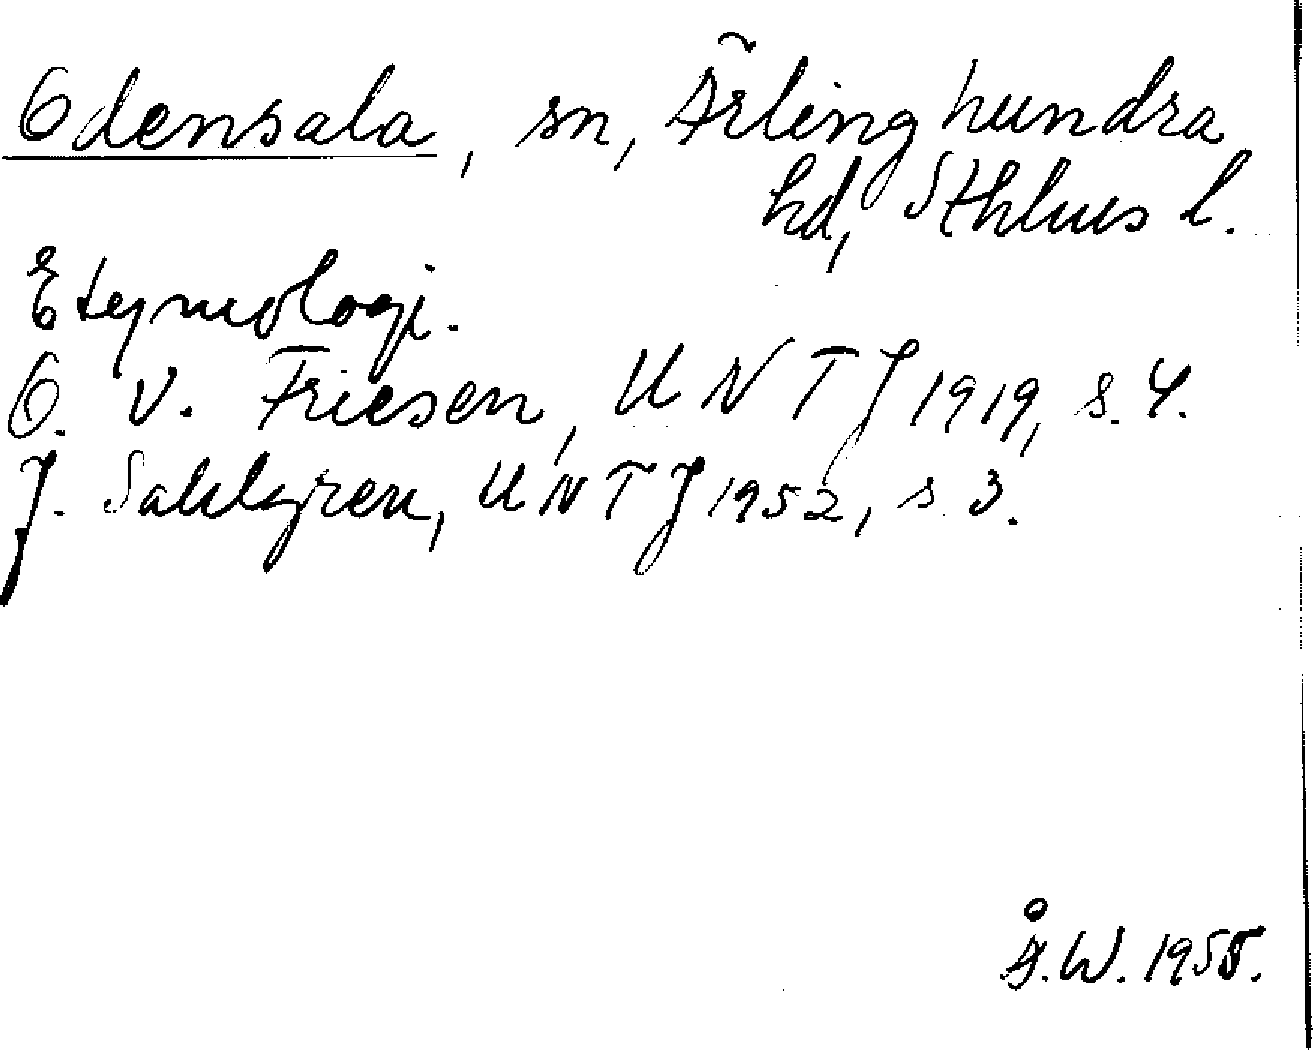 Odensala, sn, Ärlinghundra
hd, Sthlms l.
Etymologi.
O. v. Friesen, UNTJ 1919, s. 4.
J. Sahlgren, UNTJ 1952, s. 3.
Å.W. 1955.